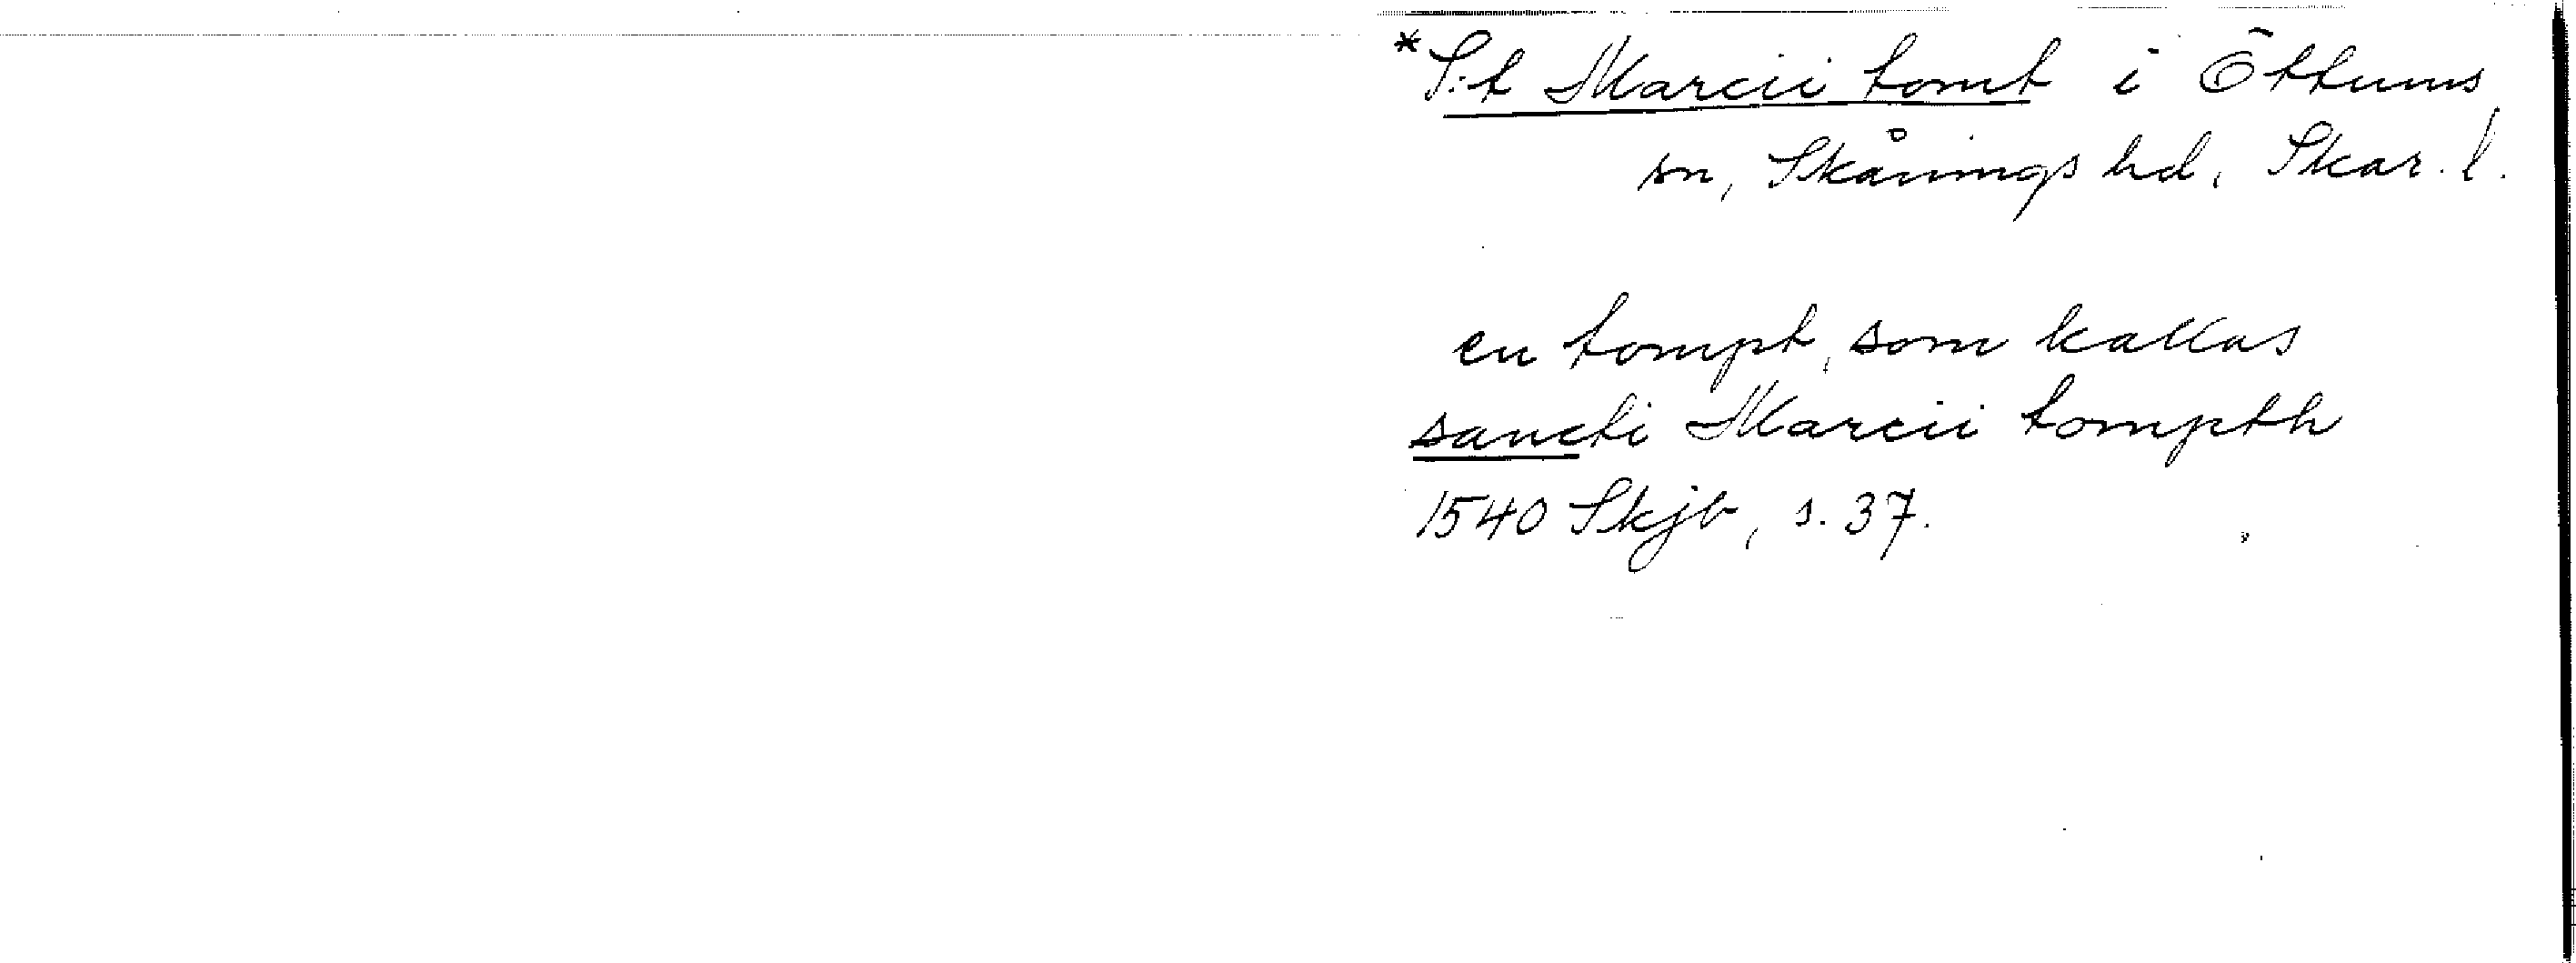 *S:t Marcii tomt i Öttums
sn, Skånings hd, Skar. l.
en tompt, som kallas
sancti Marcii tompth
1540 Skjb, s. 37.